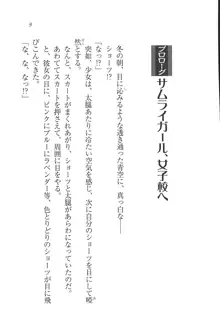 プロローグ
サムライガール、女子校へ
冬の朝、目に沁みるような透き通った青空に、真っ白な──
ショーツ？
「なっ？」
突然、少女は、太腿あたりに冷たい空気を感じた。
なんと、スカートがまくれあがり、ショーツと太腿が丸だしになっていたのだ。
慌ててスカートを押さえ、周囲に目を走らせる。次に自分のショーツを目にして啞
然。彼女の目に、ピンクにブルーにラベンダー等、色とりどりのショーツが目に飛
びこんできた。
「な、な、なっ!?」
9